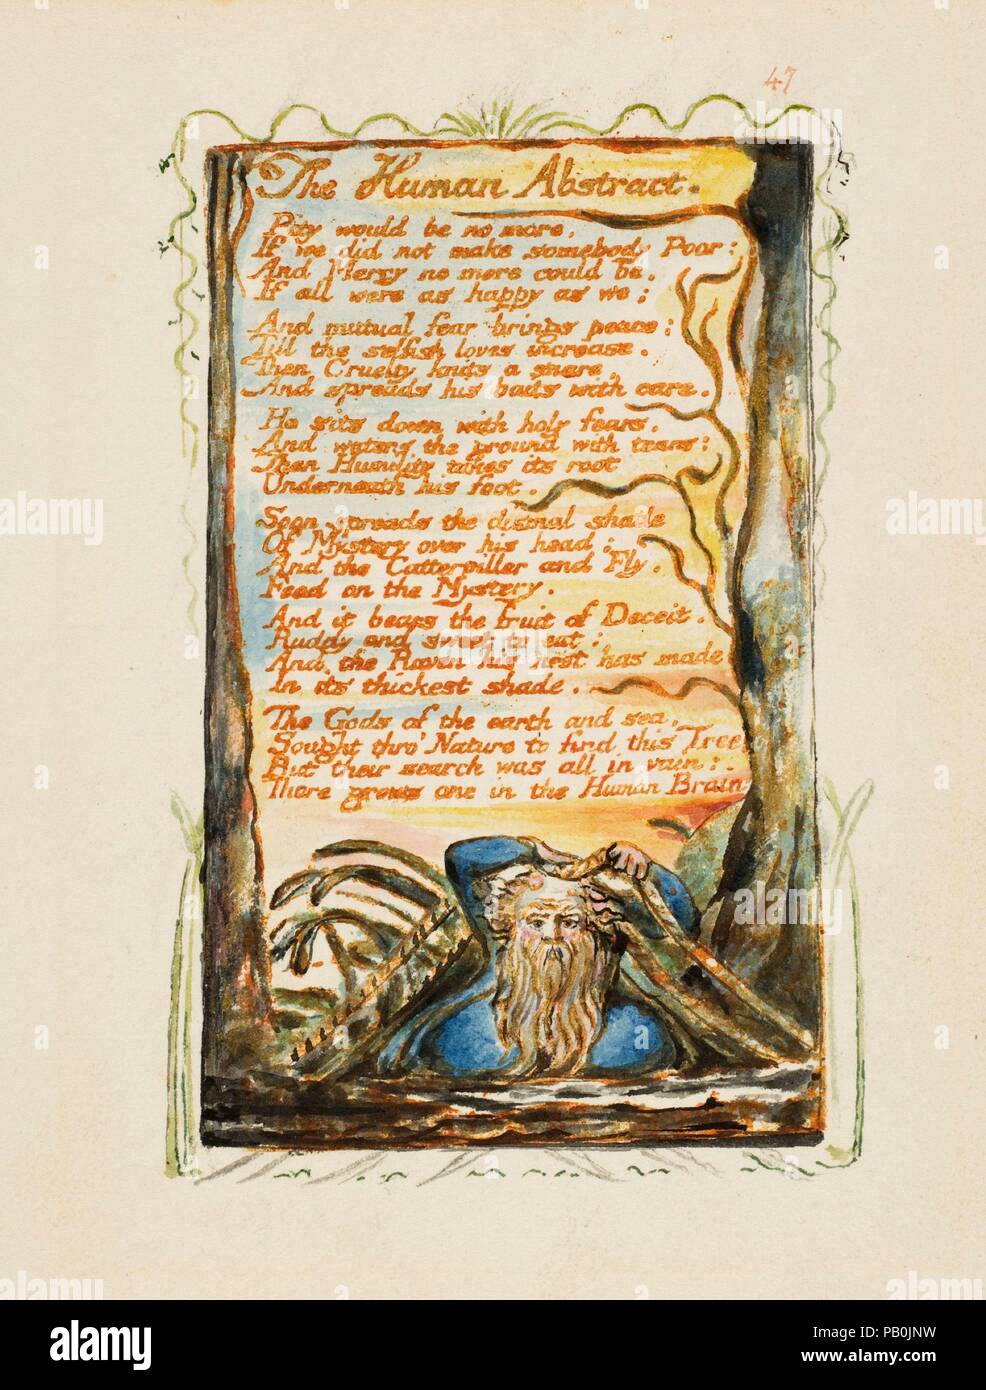 47
The Human Abstract.
Pity would be no more,
If we did not make somebody Poor:
And Mercy no more could be,
If all were as happy as we;
And mutual fear brings peace:
Till the selfish loves increase.
Then Cruelty knits a snare,
And spreads his baits with care.
He sits down with holy fears.
And waters the ground with tears:
Then Humility takes its root
Underneath his foot.
Soon spreads the dismal shade
Of Mystery over his head:
And the Catterpiller and Fly.
Feed on the Mystery.
And it bears the fruit of Deceit.
Ruddy and sweet to eat:
And the Raven his nest has made
In its thickest shade.
The Gods of the earth and sea,
Sought thro' Nature to find this Tree
But their search was all in vain:
There grows one in the Human Brain
alamy
a
alamy
Image ID: PB0JNW
www.alamy.com